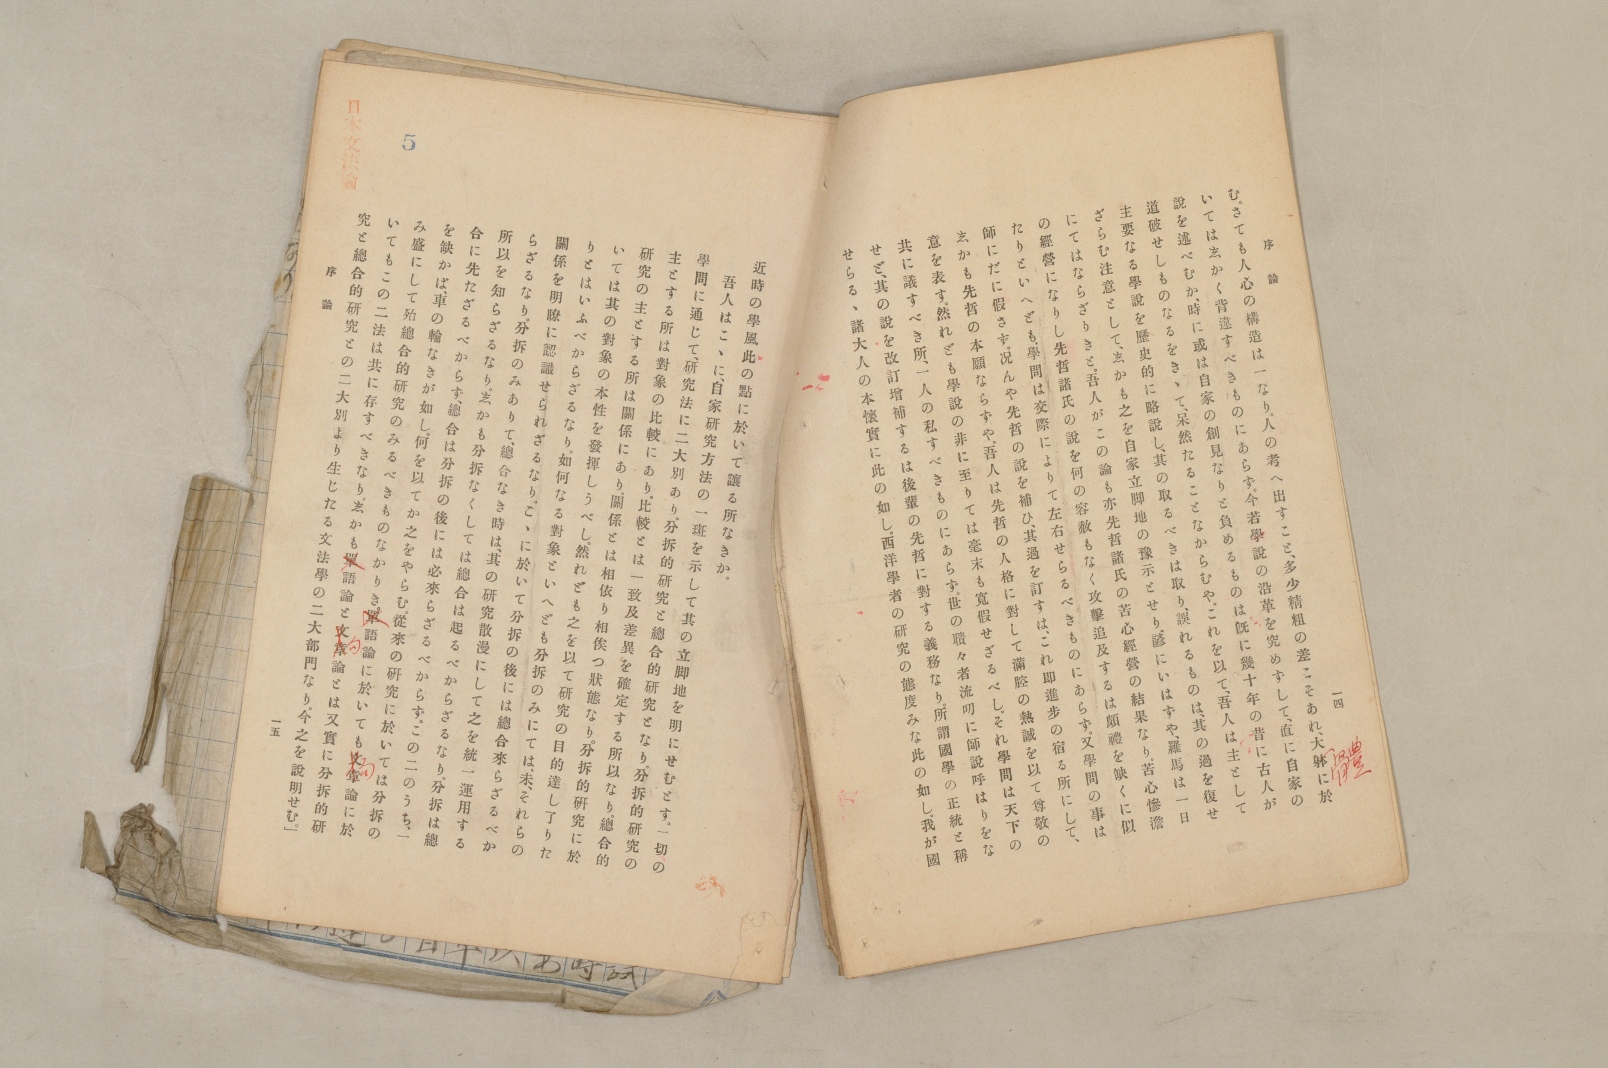 序論
一四
む。さても人心の構造は一なり。人の考へ出すこと、多少精粗の差こそあれ、大躰に於
いてはゑかく背違すべきものにあらず。今若學說の沿革を究めずして、直に自家の
說を述べむか、時に或は自家の創見なりと負めるものは既に幾十年の昔に古人が
道破せしものなるをきゝて、呆然たることなからむや。これを以て、吾人は主として
主要なる學說を歷史的に略說し、其の取るべきは取り、誤れるものは、其の過を復せ
ざらむ注意として、ゑかも之を自家立脚地の豫示とせり。諺にいはずや、羅馬は一日
にてはならざりきと。吾人がこの論も亦先哲諸氏の苦心經營の結果なり。苦心慘澹
の經營になりし先哲諸氏の說を何の容赦もなく攻擊追及するは頗禮を缺くに似
たりといへども、學問は交際によりて左右せらるべきものにあらず。又學問の事は
師にだに假さず。况んや先哲の說を補ひ、其過を訂すは、これ即進步の宿る所にして、
ゑかも先哲の本願ならずや。吾人は先哲の人格に對して滿腔の熱誠を以て尊敬の
意を表す。然れども學說の非に至りては毫末も寬假せざるべし。それ學問は天下の
共に議すべき所、一人の私すべきものにあらず。世の聵々者流叨に師說呼はりをな
せど、其の說を改訂增補するは後輩の先哲に對する義務なり。所謂國學の正統と稱
せらるゝ諸大人の本懷實に此の如し。西洋學者の研究の態度みな此の如し。我が國
體
日本文法論
5
近時の學風此の點に於いて讓る所なきか。
吾人はこゝに、自家硏究方法の一斑を示して其の立脚地を明にせむとす。一切の
學問に通じて、硏究法に二大別あり。分拆的硏究と總合的硏究となり。分拆的硏究の
主とする所は對象の比較にあり。比較とは一致及差異を確定する所以なり。總合的
硏究の主とする所は關係にあり。關係とは相依り相俟つ狀態なり。分拆的硏究に於
いては其の對象の本性を發揮しうべし。然れども之を以て硏究の目的達し了りた
りとはいふべからざるなり。如何なる對象といへども分拆のみにては、未、それらの
關係を明瞭に認識せられざるなり。こゝに於いて分拆の後には總合來らざるべか
らざるなり。分拆のみありて、總合なき時は、其の硏究散漫にして之を統一運用する
所以を知らざるなり。ゑかも分拆なくしては總合は起るべからざるなり。分拆は總
合に先たざるべからず、總合は分拆の後には必來らざるべからず。この二のうち、一
を缺かば、車の輪なきが如し。何を以てか之をやらむ。從來の硏究に於いては分拆の
み盛にして殆總合的硏究のみるべきものなかりき。單語論に於いても文章論に於
いてもこの二法は共に存すべきなり。ゑかも單語論と文章論とは又實に分拆的硏
究と總合的硏究との二大別より生じたる文法學の二大部門なり。今之を說明せむ。」
序論
一五